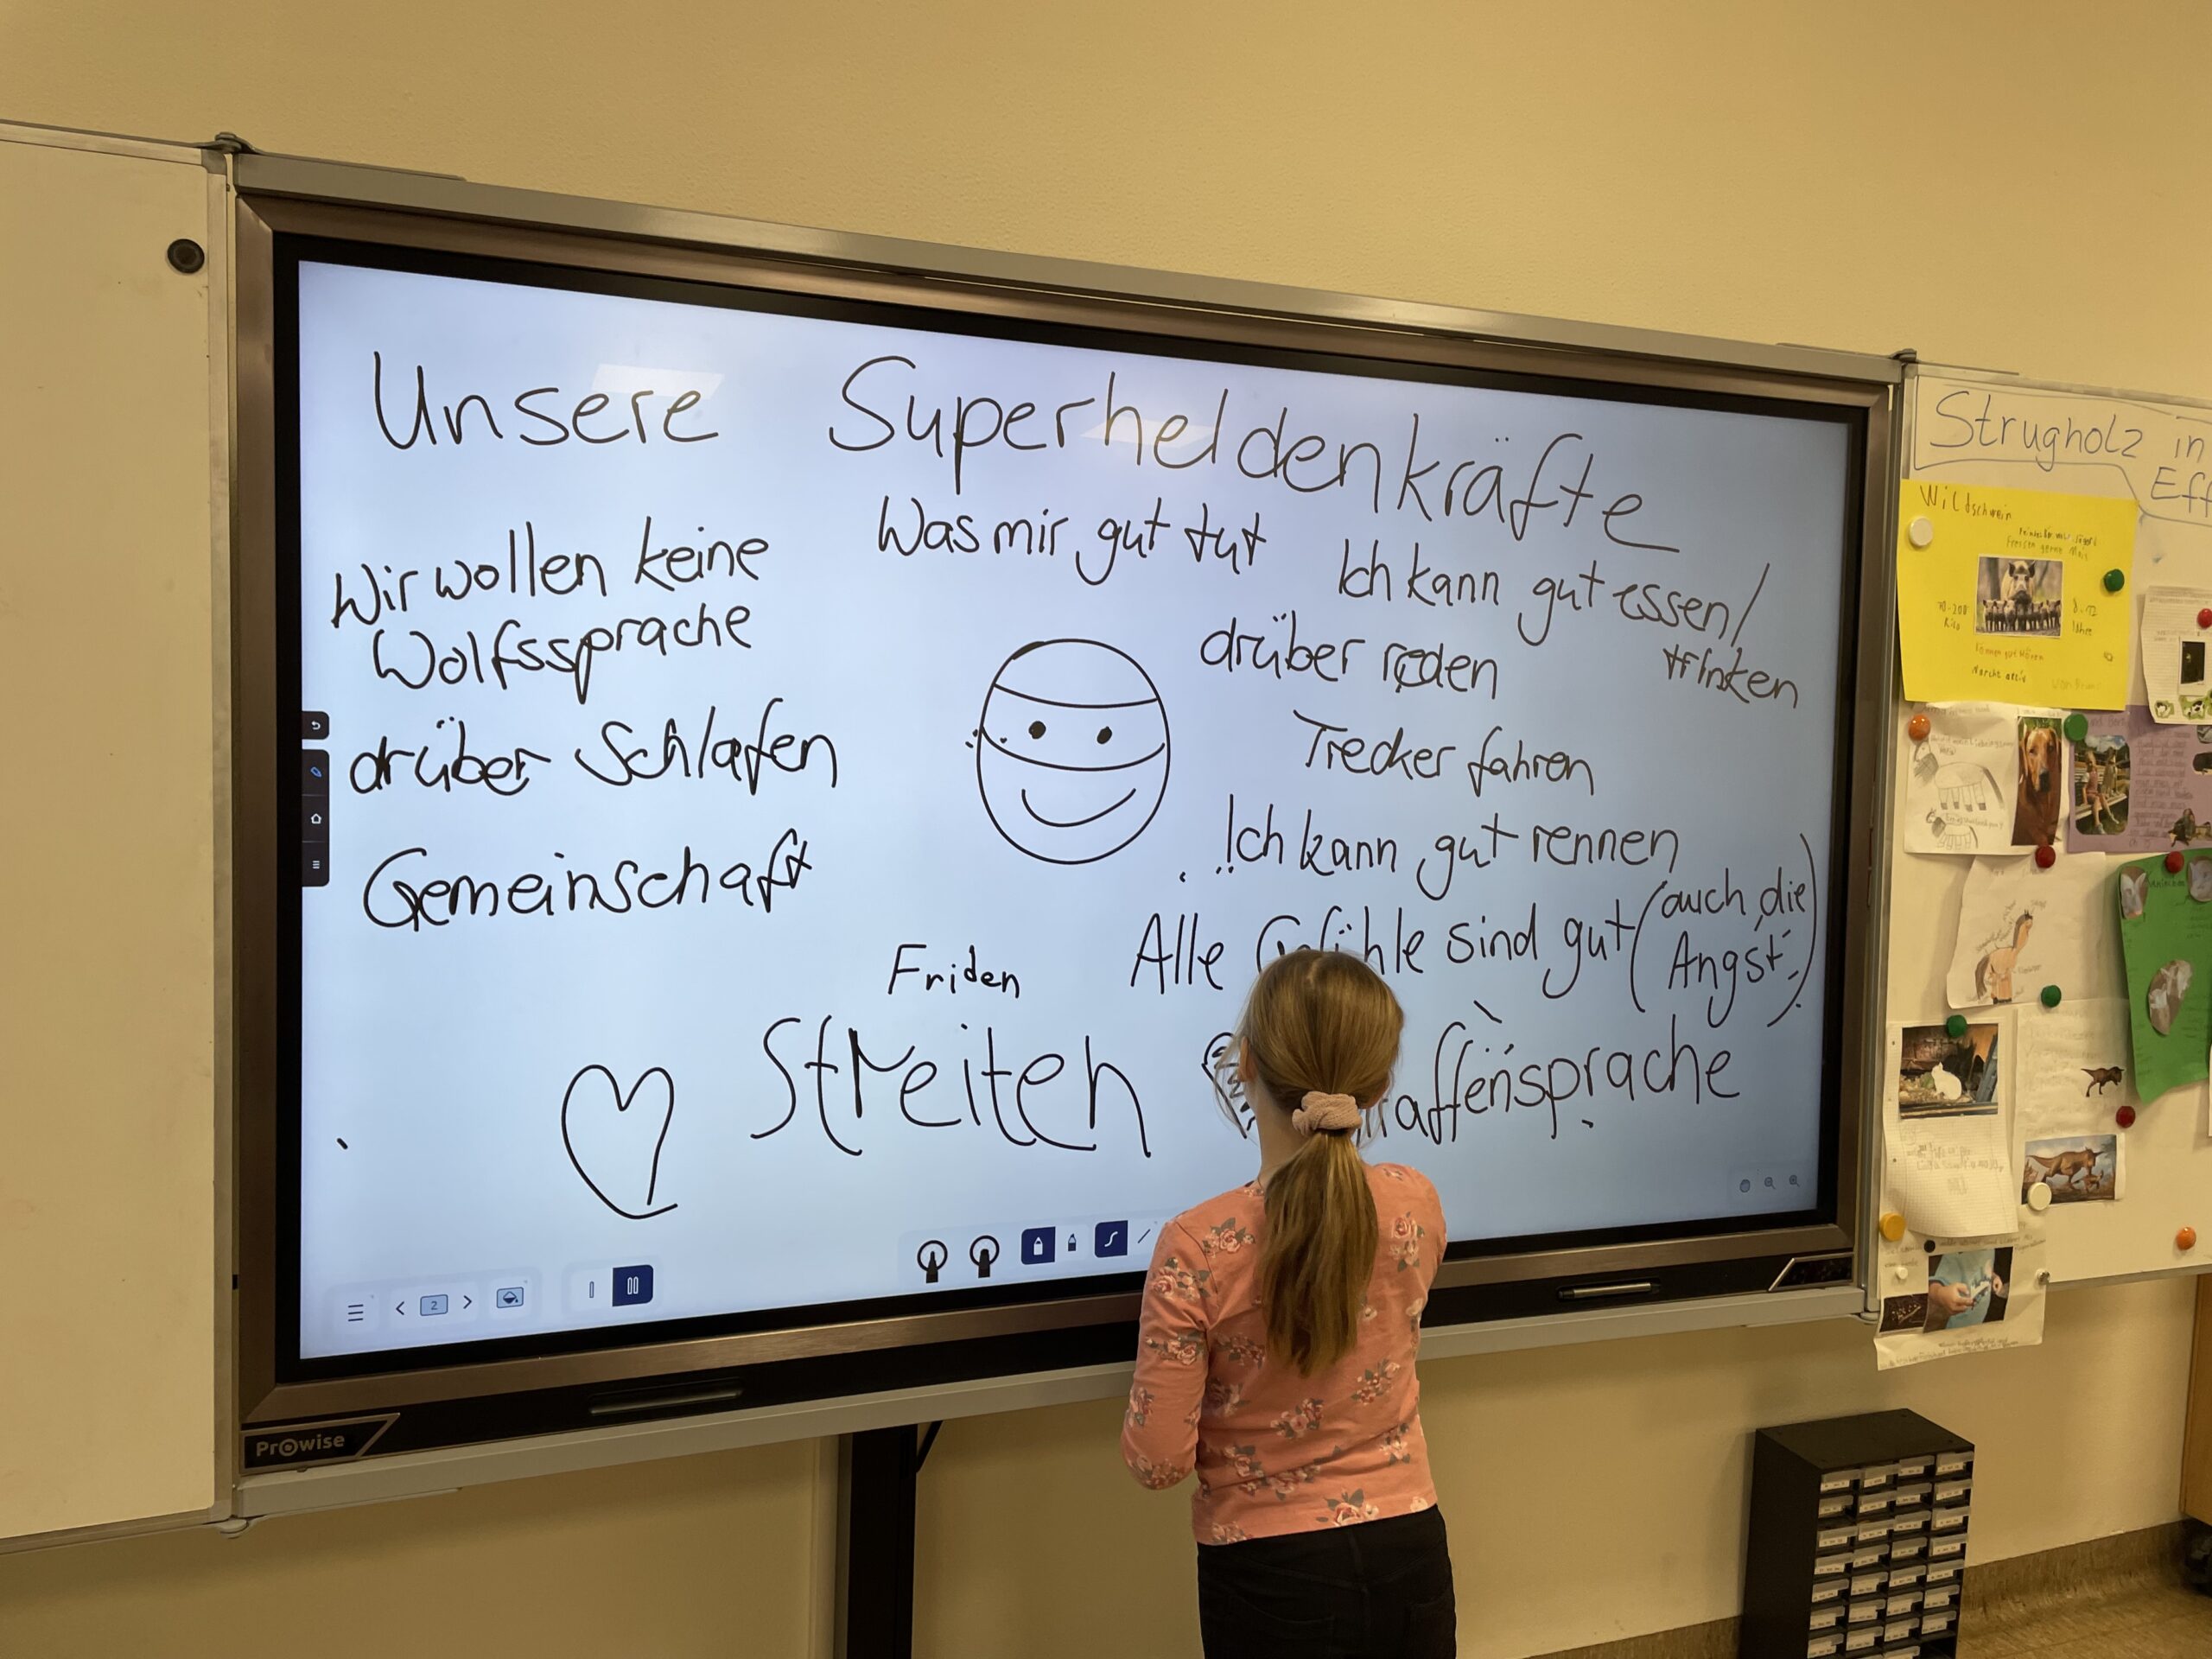 Unsere Superheldenkräfte
Was mir gut tut
Wir wollen keine
Wolfssprache
drüber Schlafen
Gemeinschaft
Ich kann gut essen/
trinken
drüber reden
Trecker fahren
Ich kann gut rennen
Alle Gefühle sind gut (auch die
Angst)
Friden
Streiten
affensprache
2
Prowise
Strugholz in
Eff
Wildschwein
Fressen gerne Mais
8-12
Jahre
können gut hören